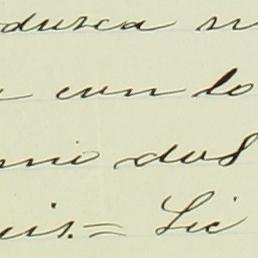 dusca n
con lo
mio dos
uis.= Lic